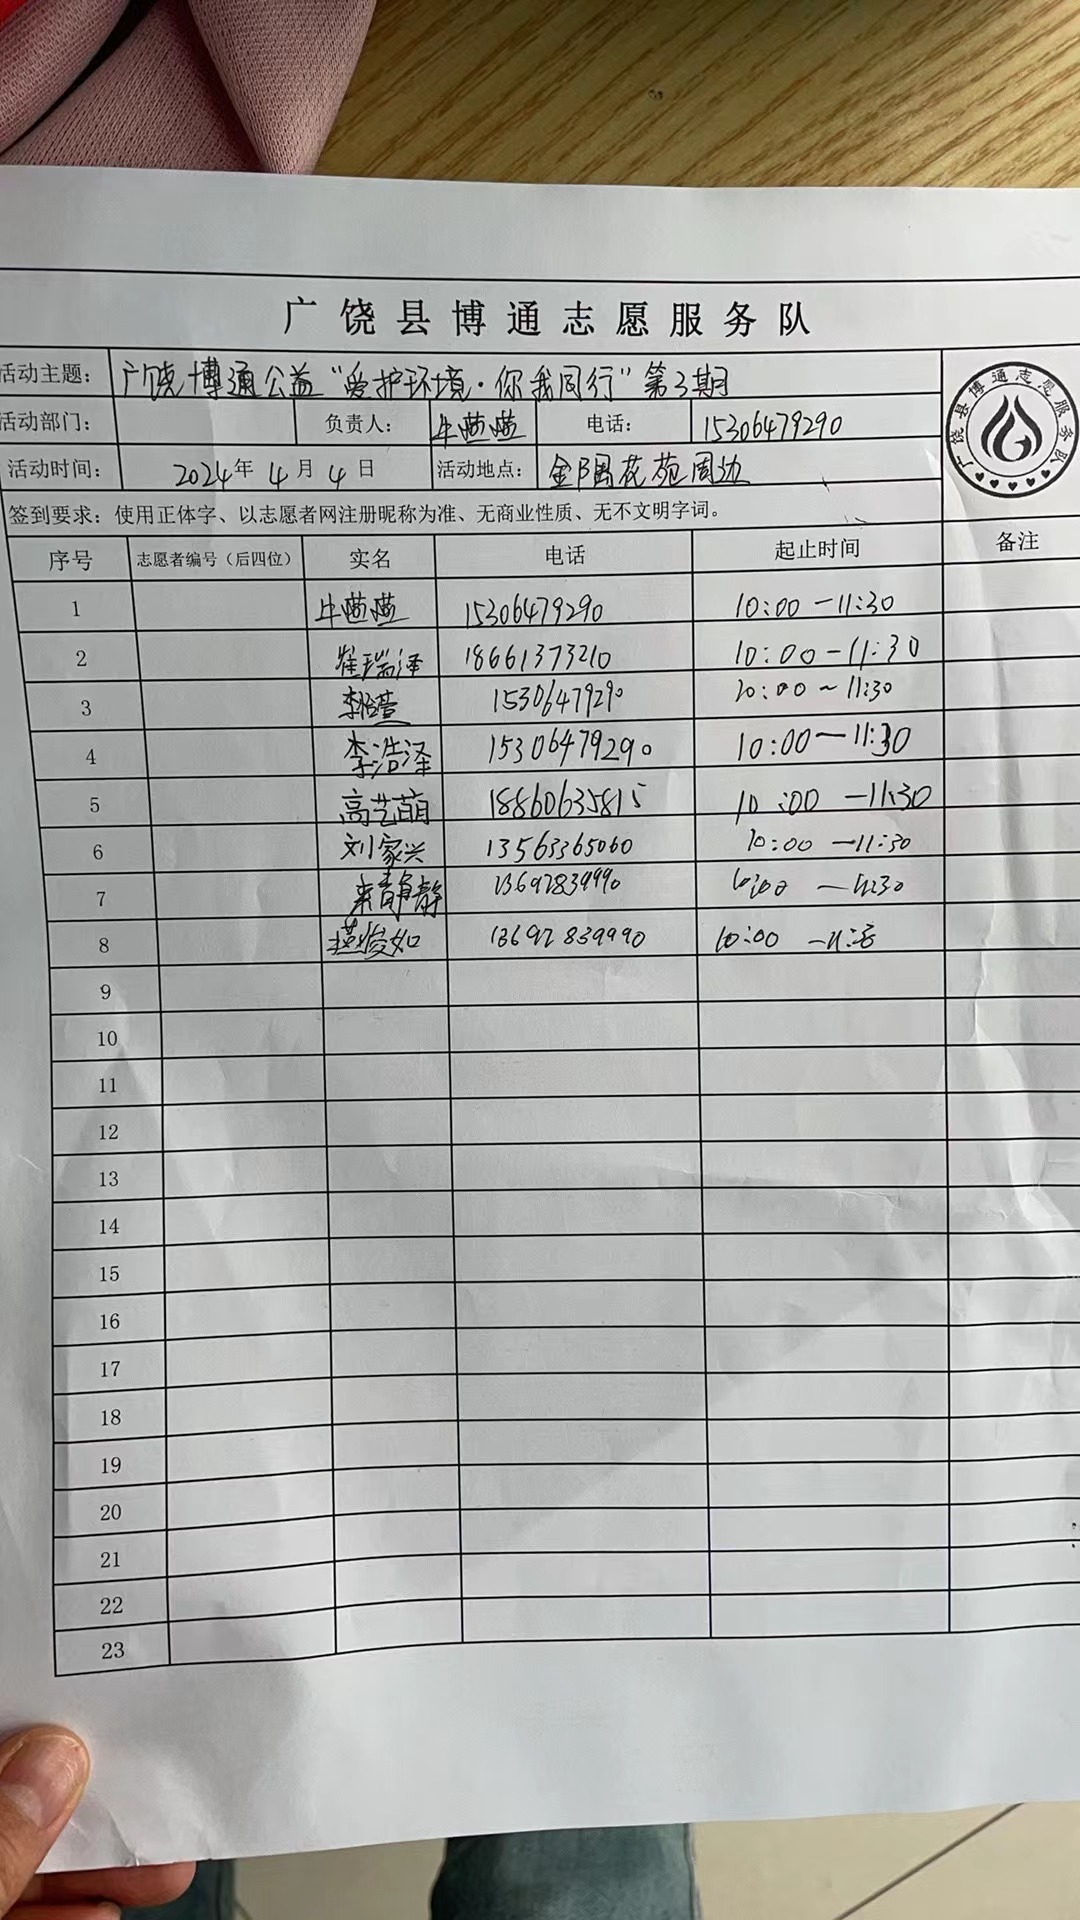 广饶县博通志愿服务队
活动主题: 广饶博通公益“爱护环境·你我同行”第3期
活动部门: 负责人: 牛苗苗 电话: 15306479290
活动时间: 2024年4月4日 活动地点: 金隅花苑周边
广饶县博通志愿服务队
签到要求: 使用正体字、以志愿者网注册昵称为准、无商业性质、无不文明字词。
序号 志愿者编号（后四位） 实名 电话 起止时间 备注
1 15306479290 10:00—11:30
2 崔瑞泽 18661373210 10:00-11:30
3 15306479290 10:00~11:30
4 李浩泽 15306479290 10:00—11:30
5 高艺萌 18860635815 10:00—11:30
6 刘家兴 13563365060 10:00—11:30
7 13692839990 10:00—11:30
8 13692839990 10:00
9
10
11
12
13
14
15
16
17
18
19
20
21
22
23